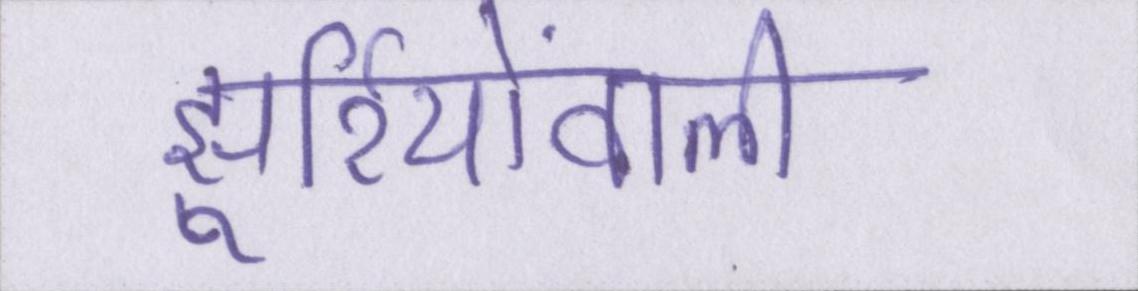 झुर्रियोंवाली